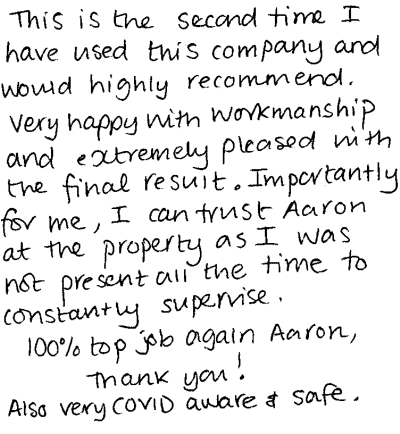 This is the second time I
have used this company and
would highly recommend.
Very happy with workmanship
and extremely pleased with
the final result. Importantly
for me, I can trust Aaron
at the property as I was
not present all the time to
constantly supervise.
100% top job again Aaron,
Thank you!
Also very COVID aware & safe.